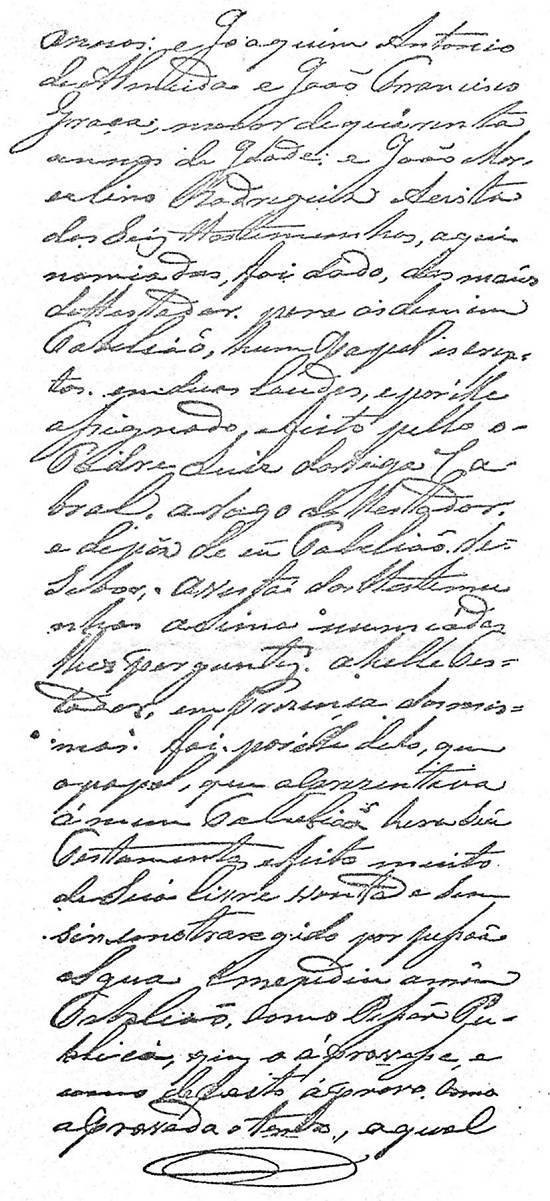 annos: e Joaquim Antonio
de Almeida e João Francisco
Graça; maior de quarenta
annos de Idade: e João Mor-
elino Rodrigues Aevista
das Seis testemunhas, aqui
nomiadas, foi dado, das maõs
do testador. pera as demim
Tabelião, hum Papel iscrip-
tos. em duas laudas, e por elle
assignado, efeito pello o-
Padre Luis da Veiga Ca-
bral. a Rogo do testador.
e depoñ de eu Tabelião, Re-
sebor, avista das testemu
nhas acima numiadas
lhes perguntei. a helle tes-
tador, em Prezença das mes-
mas. foi. por elle dito, que
o papel, que aprezentava
á mim Tabelião hera Seu
Testamento, efeito muito
de Sua livre vontade Sem
sirconstrangido por pessoa
algua, emepediu amim
Tabelião, como Pessoa Pu-
blica, que o áprovasse, e
como de feito áprovo. como
aprovado o tenho, aqual